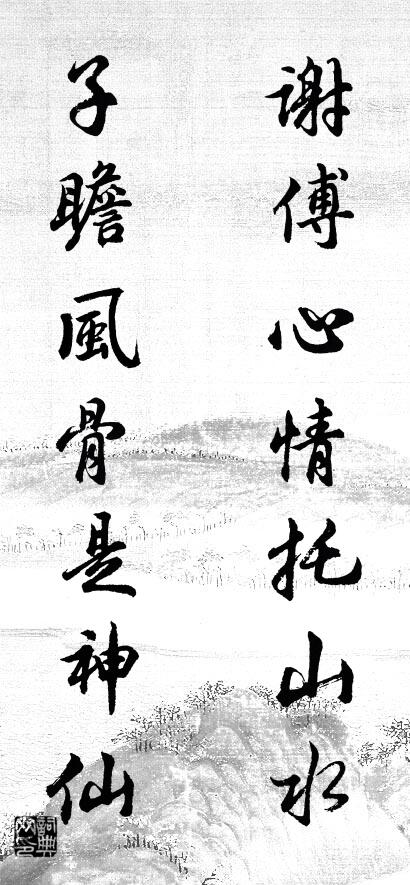 謝傅心情托山水
子瞻風骨是神仙